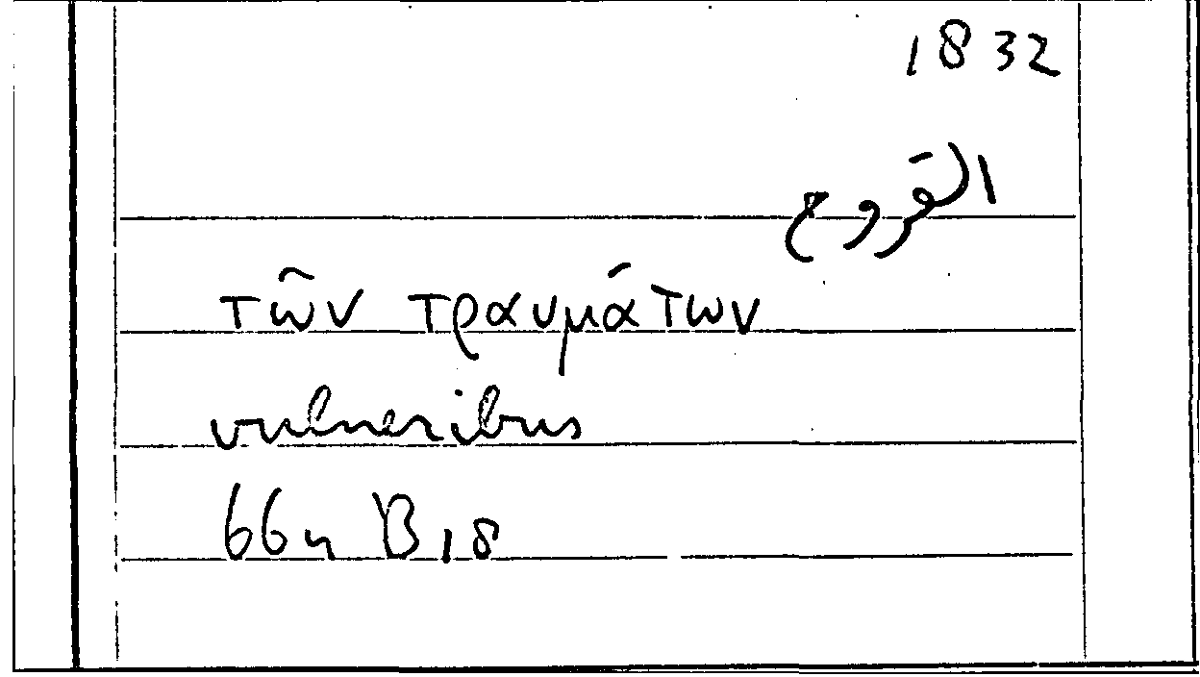 1832
القروح
τῶν τραυμάτων
vulneribus
664 B 18